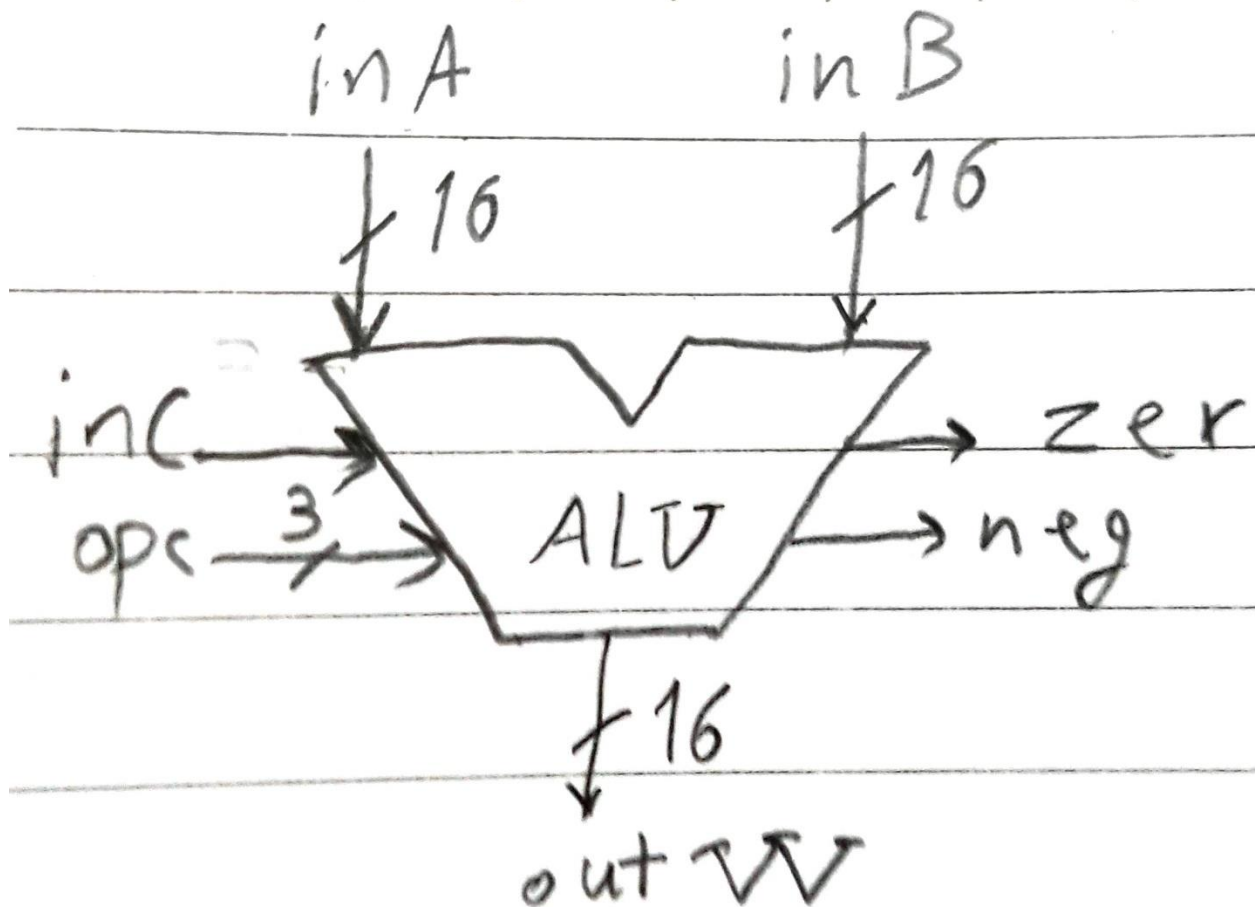 inA inB
16 16
inC zer
opc 3 ALU neg
16
outW